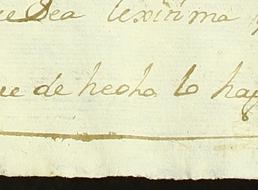 que sea lexitima
ue de hecho lo hag